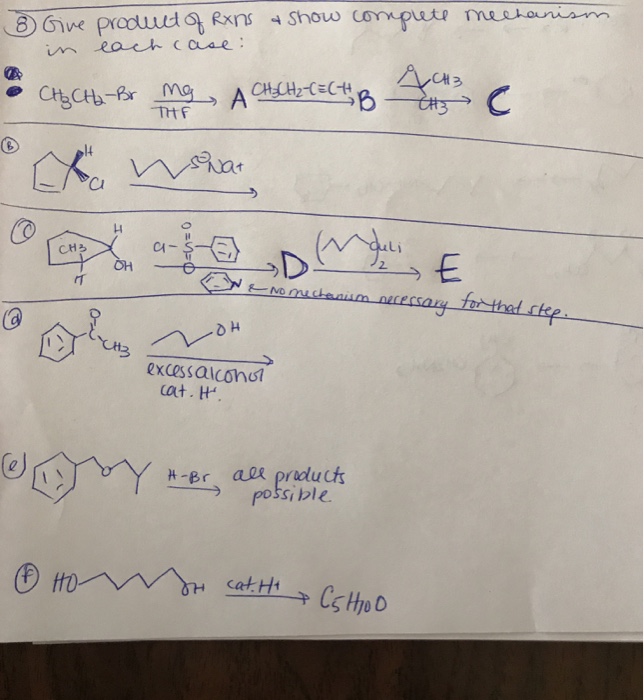 ⑧ Give product of Rxns & show complete mechanism
in each case:
CH3CH2-Br Mg THF A CH3CH2-C≡C-H B CH3 CH3 C
Ⓑ H Cl S⊖Na+
Ⓒ CH3 H OH H Cl-S- O O N D ( )2 CuLi E
← no mechanism necessary for that step.
ⓓ O C CH3 OH
excess alcohol
cat. H+.
ⓔ O H-Br all products
possible.
ⓕ HO OH cat. H+ C5H10O